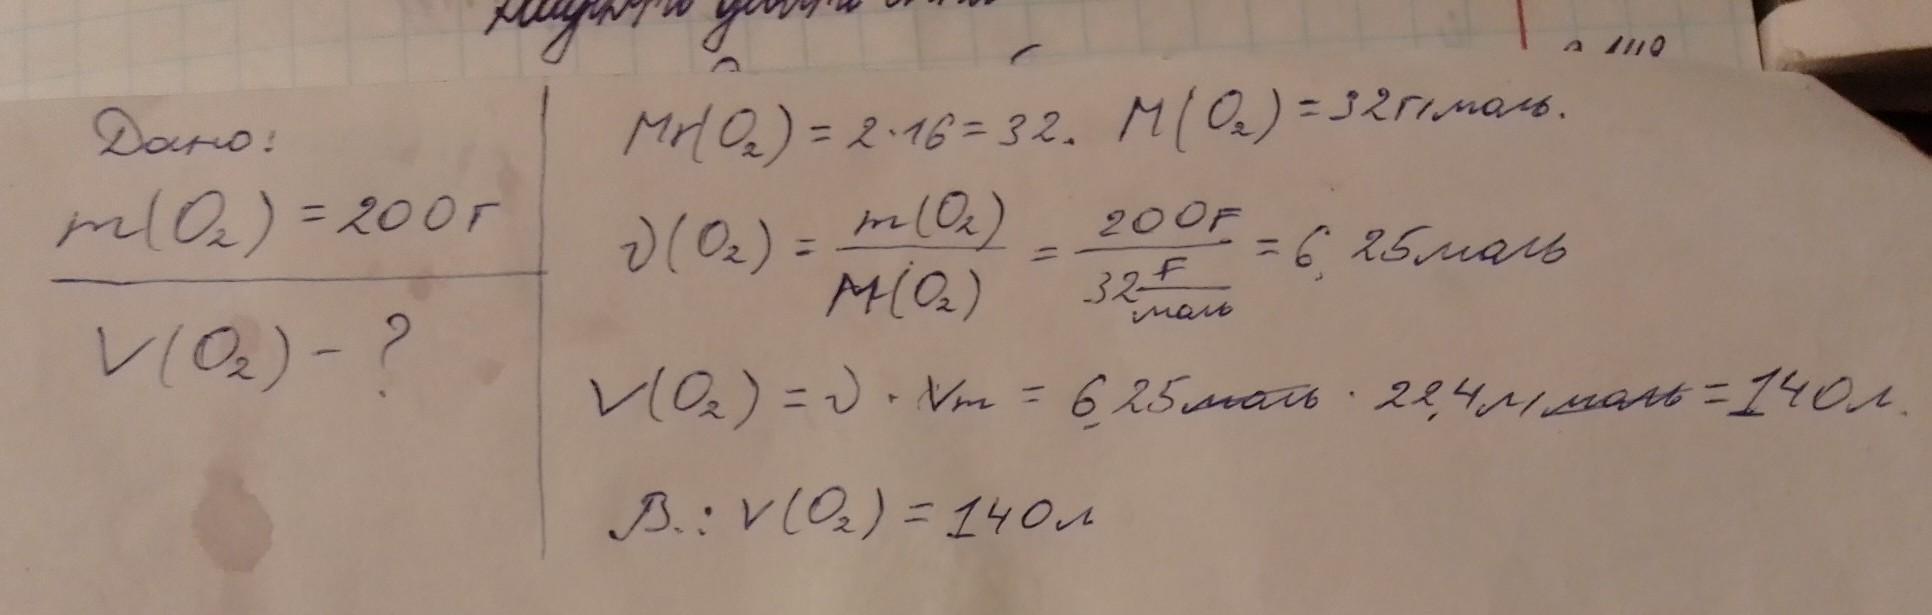 Дано:
m(O₂) = 200г
V(O₂) - ?
Mr(O₂) = 2·16 = 32. M(O₂) = 32г/моль.
ν(O₂) = m(O₂)/M(O₂) = 200г/32 г/моль = 6,25моль
V(O₂) = ν · Vm = 6,25моль · 22,4л/моль = 140л.
В.: V(O₂) = 140л